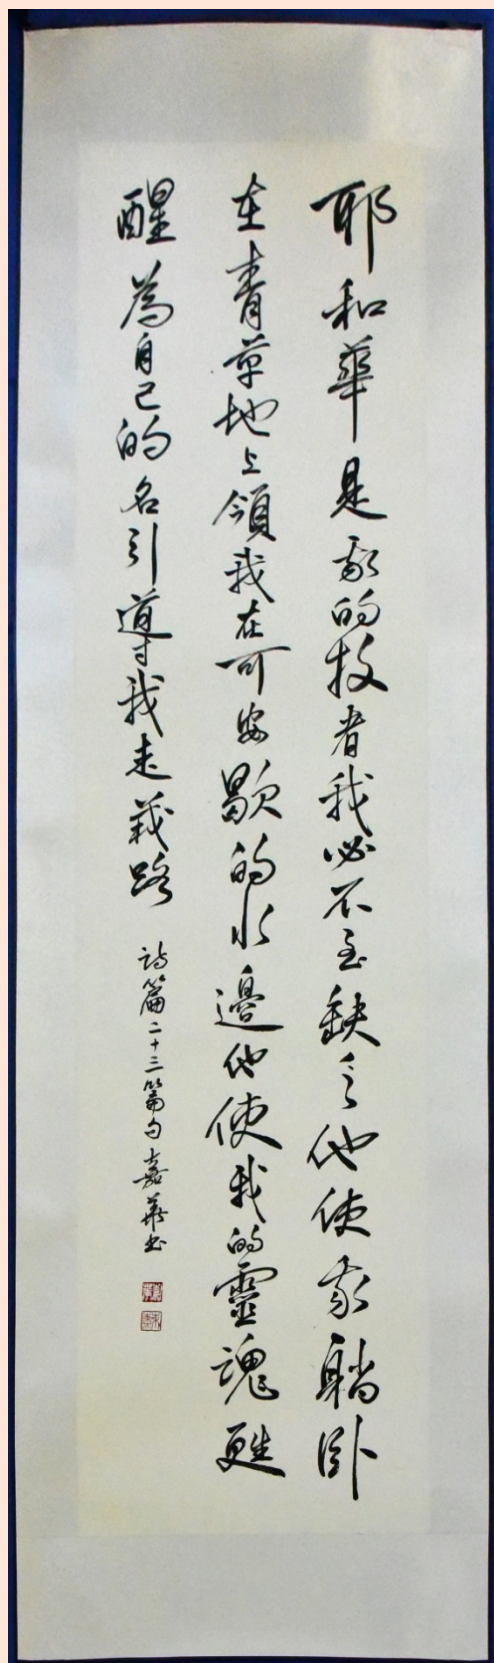 耶和華是我的牧者我必不至缺乏他使我躺臥
在青草地上領我在可安歇的水邊他使我的靈魂甦
醒為自己的名引導我走義路
詩篇二十三篇句 嘉華書